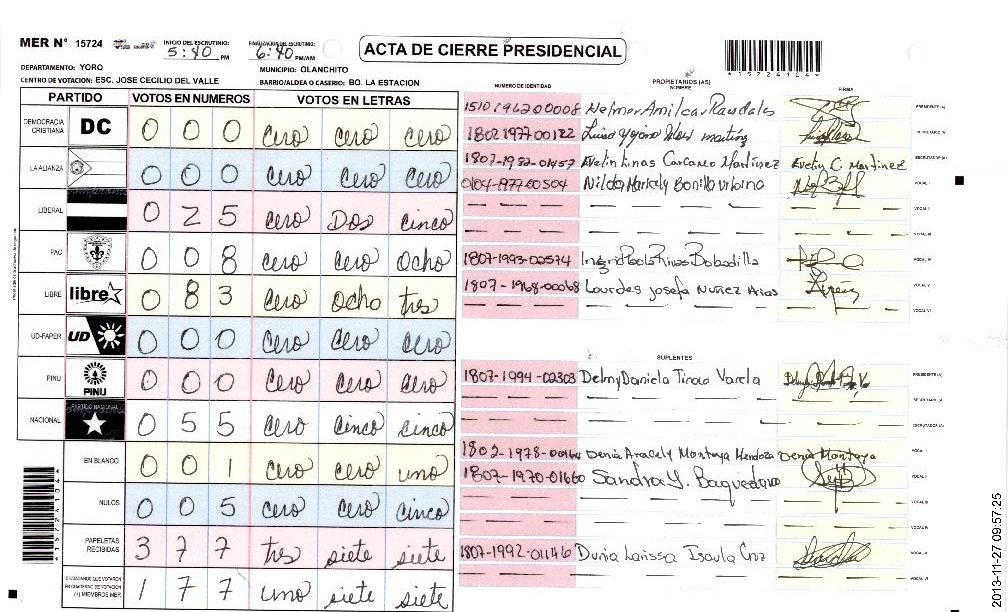 MER N° 15724
INICIO DEL ESCRUTINIO:
5:40 PM
FINALIZACIÓN DEL ESCRUTINIO:
6:40 PM/AM
ACTA DE CIERRE PRESIDENCIAL
*15724104*
DEPARTAMENTO: YORO
MUNICIPIO: OLANCHITO
CENTRO DE VOTACION: ESC. JOSE CECILIO DEL VALLE
BARRIO/ALDEA O CASERIO: BO. LA ESTACION
PARTIDO VOTOS EN NUMEROS VOTOS EN LETRAS
DEMOCRACIA CRISTIANA DC 0 0 0 cero cero cero
LA ALIANZA 0 0 0 cero cero cero
LIBERAL 0 2 5 cero Dos cinco
PAC 0 0 8 cero cero Ocho
LIBRE libre 0 8 3 cero Ocho tres
UD-FAPER UD 0 0 0 cero cero cero
PINU PINU 0 0 0 cero cero cero
NACIONAL PARTIDO NACIONAL 0 5 5 cero cinco cinco
EN BLANCO 0 0 1 cero cero uno
NULOS 0 0 5 cero cero cinco
PAPELETAS RECIBIDAS 3 7 7 tres siete siete
CIUDADANOS QUE VOTARON EN CUADERNO DE VOTACION (+) MIEMBROS MER 1 7 7 uno siete siete
NUMERO DE IDENTIDAD PROPIETARIOS (AS) NOMBRE FIRMA
1510196200008 Nelmer Amilcar Raudales PRESIDENTE (A)
1802-1977-00122 SECRETARIO (A)
1807-1982-01457 Evelin Linas Carcamo Martinez Evelin C. Martinez ESCRUTADOR (A)
0104-1977-00504 Nilda Maricely Bonilla Urbino VOCAL I
VOCAL II
VOCAL III
1807-1993-02574 Ingrid Paola Rivas Bobadilla VOCAL IV
1807-1968-00068 Lourdes Josefa Nuñez Arias VOCAL V
VOCAL VI
SUPLENTES
1807-1994-02303 Delmy Daniela Tinoco Varela PRESIDENTE (A)
SECRETARIO (A)
ESCRUTADOR (A)
1802-1978-00164 Denia Aracely Montoya Mendoza Denia Montoya VOCAL I
1807-1970-01660 Sandra Y. Baquedano VOCAL II
VOCAL III
VOCAL IV
1807-1992-01146 Dunia Larissa Isaula Cruz VOCAL V
VOCAL VI
*15724104*
2013-11-27 09:57:25